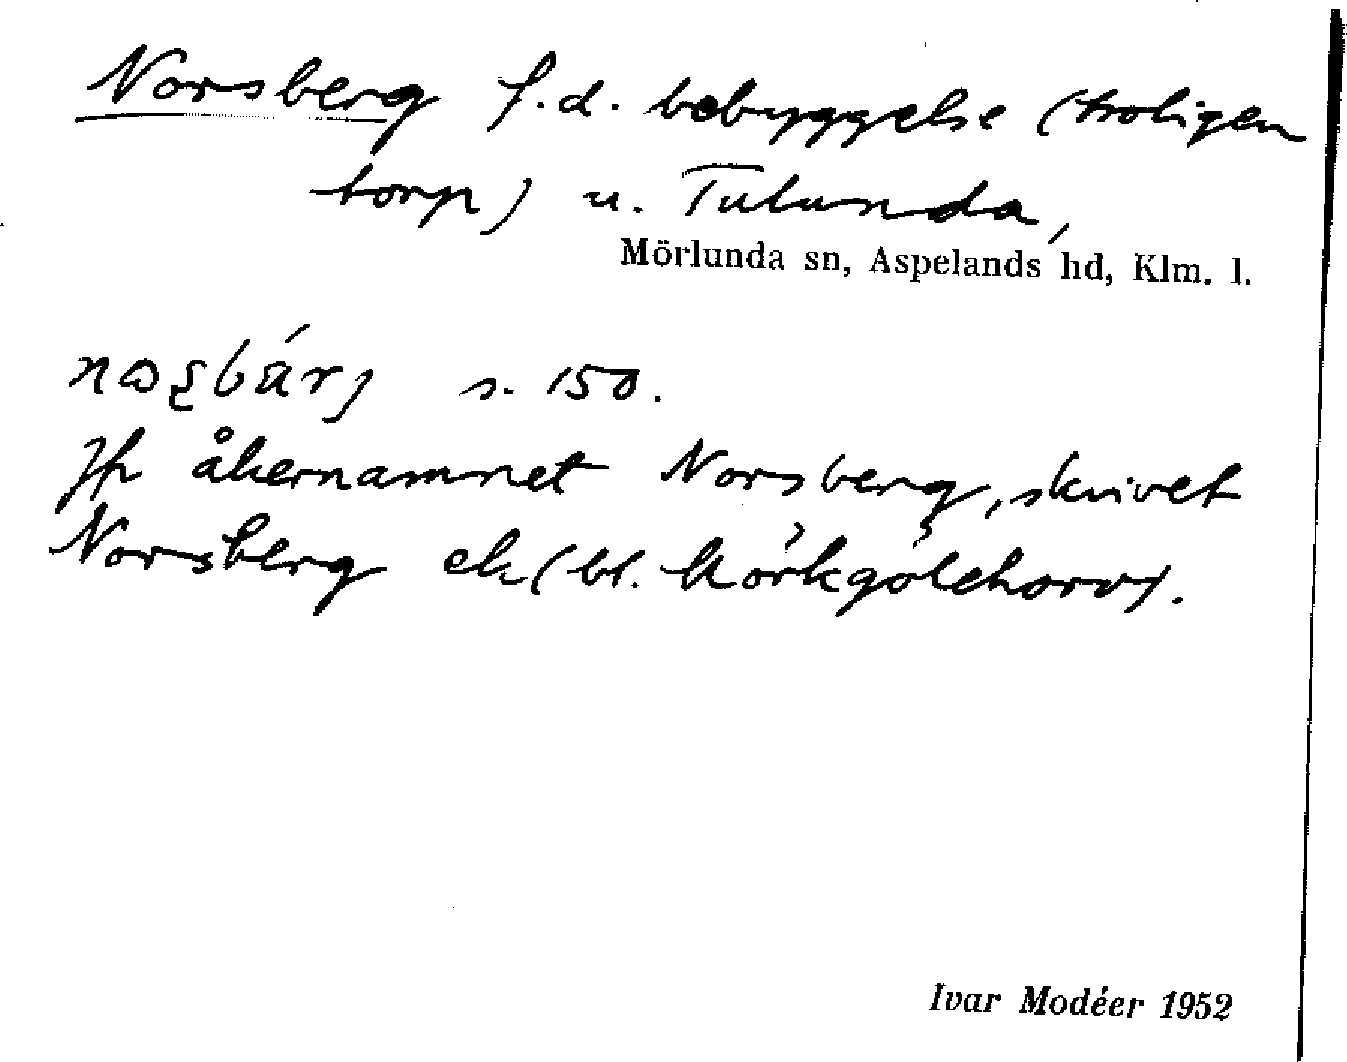 Norsberg f.d. bebyggelse (troligen
torp) u. Tulunda,
Mörlunda sn, Aspelands hd, Klm. l.
s. 150.
Jfr åkernamnet Norsberg, skrivet
Norsberg ek (bl.
Ivar Modéer 1952